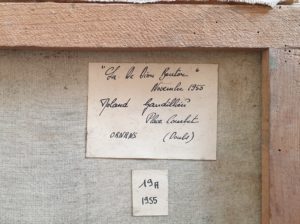 "La Vie
Novembre 1955
Roland Gaudillière
Place Courbet
ORNANS (Doubs)
19 A
1955